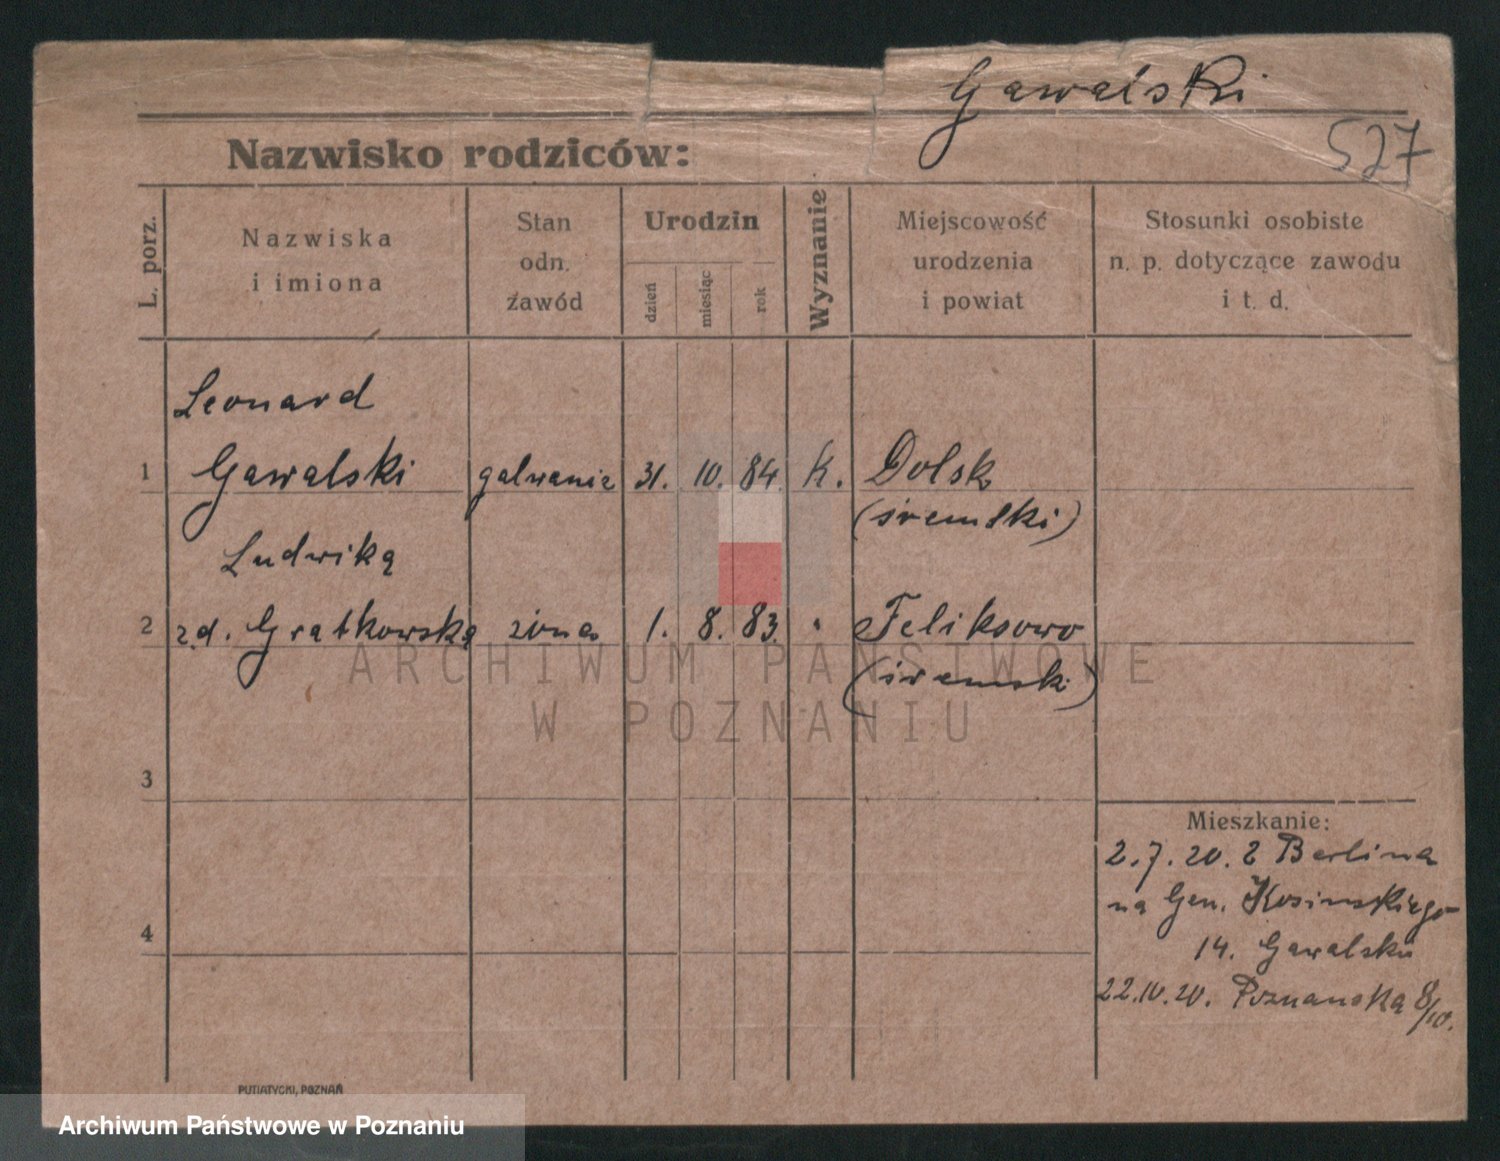 Gawalski
527
Nazwisko rodziców:
L. porz.
Nazwiska
i imiona
Stan
odn.
zawód
Urodzin
dzień
miesiąc
rok
Wyznanie
Miejscowość
urodzenia
i powiat
Stosunki osobiste
n. p. dotyczące zawodu
i t. d.
Leonard
1 Gawalski 31. 10. 84. k. Dolsk
(śremski)
Ludwika
2 zd. Gratkowska żona 1. 8. 83. " Feliksowo
(śremski)
3
4
Mieszkanie:
2.7.20. z Berlina
na Gen. Kosinskiego
14. Gawalski
22.10.20. Poznanska 8/10.
ARCHIWUM PAŃSTWOWE
W POZNANIU
PUTIATYCKI, POZNAŃ
Archiwum Państwowe w Poznaniu